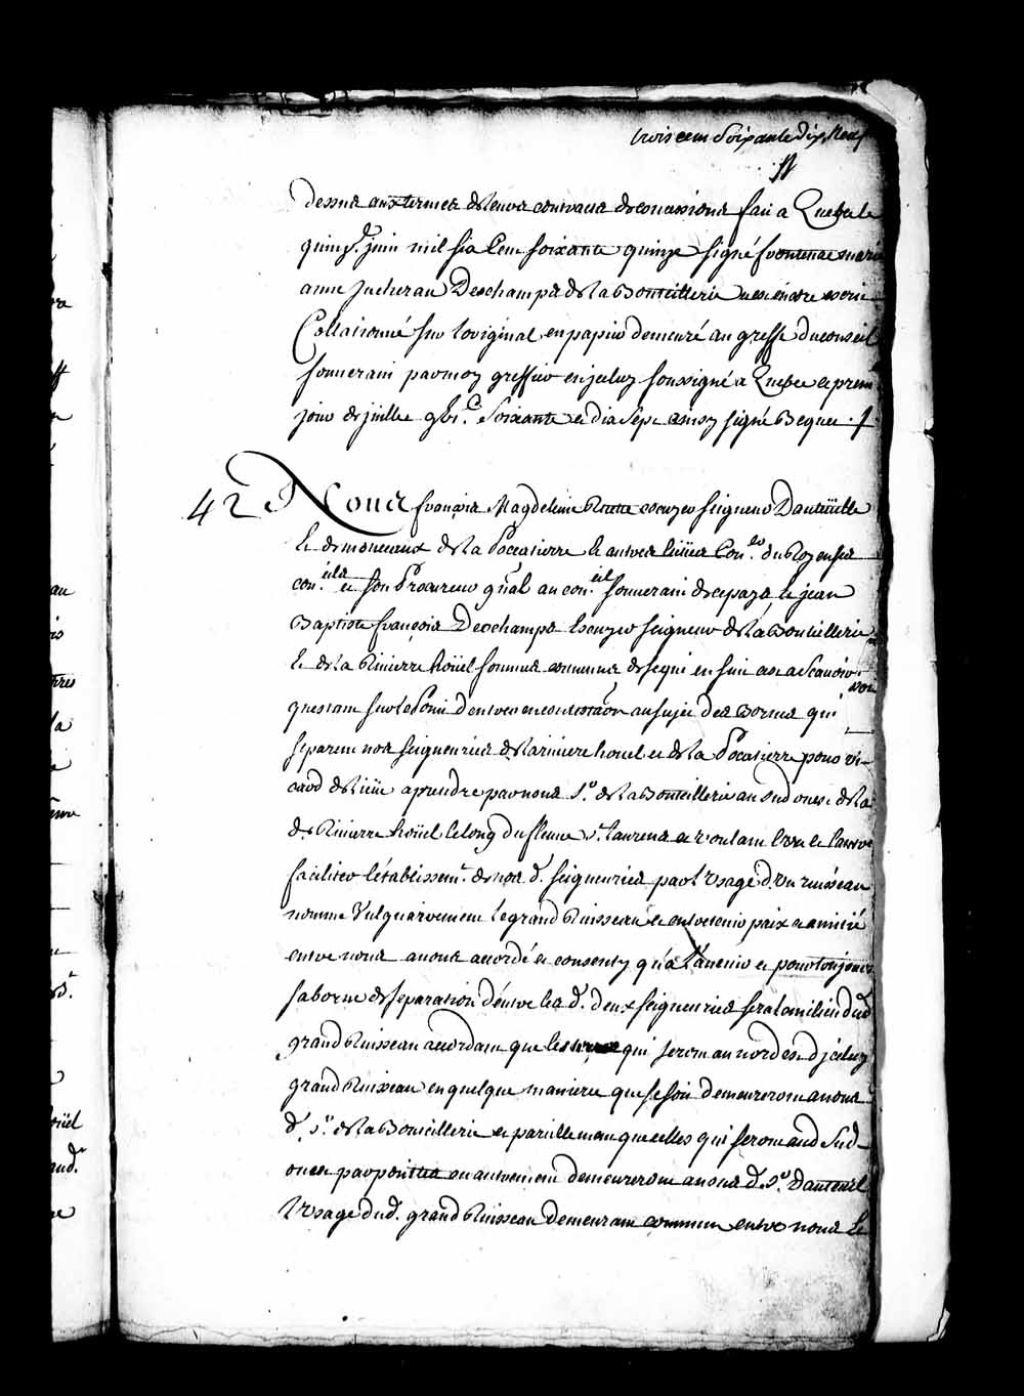 trois cens soixante dix neuf
dessus aux termes de leurs contracts de concessions fait a Quebec le
quinz.e juin mil six Cent soixante quinze signé frontenac marie
anne Juchereau Deschamps de la Bouteillerie
Collationné sur loriginal en papier demeuré au greffe du conseil
souverain par moy greffier en jceluy soussigné a Quebec le prem
jour de juillet gbi.C soixante et dix sept ainsy signé Becquet ./.
42 Nous françois Magdeleine Ruette escuyer seigneur Dauteüille
& de monceaux de la Pocatierre & autres lieüx Con.er du Roy en ses
con.eils et son Procureur gñal au con.eil souverain de ce pays, & jean
Baptiste françois Deschamps Escuyer seigneur de la Bouteillerie
& de la Rivierre hoüel sommes convenus de ce qui en suit c'est a scavoir
que estant sur le point d'entrer en contestaõn au sujet des bornes qui
separent nos seigneuries de la riviere houel et de la Pocatierre pour
de lieüe a prendre par nous s.r de la Bouteillerie au sud ouest de la
d. Rivierre hoüel le long du fleuve s.t laurens et voulant
faciliter l'établissem.t de nos d. seigneuries par l'usage d'un ruisseau
nommé Vulguairement le grand Ruisseau & entretenir paix et amitié
entre nous auons accordé et consenty qu'a l'auenir et pour toujours
la borne de separation d'entre les d. deux seigneuries sera le milieu dud
grand Ruisseau accordant que les terres qui seront au nord est d'jceluy
grand Ruisseau en quelque maniere que ce soit demeureront a nous
d. s.r de la Bouteillerie et pareillement que celles qui seront au d. sud
ouest par pointes ou autrement demeureront a nous d. s.r Dauteuil
l'Usage dud. grand Ruisseau demeurant commun entre nous &